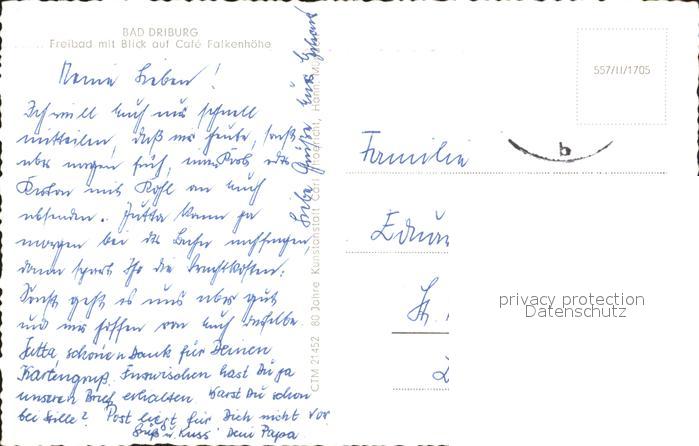 BAD DRIBURG
Freibad mit Blick auf Café Falkenhöhe
Meine Lieben!
Ich will Euch nur schnell
mitteilen, daß wir heute, sonst
aber morgen früh, einen Korb oder
Karton mit Kohl an Euch
absenden. Jutta kann ja
morgen bei der Bahn nachfragen,
dann spart Ihr die Frachtkosten.
Sonst geht es uns aber gut
und wir hoffen von Euch dasselbe.
Jutta, schönen Dank für Deinen
Kartengruß. Inzwischen hast Du ja
unseren Brief erhalten. Warst Du schon
bei Hille? Post liegt für Dich nicht vor
Gruß u. Kuss Dein Papa
Liebe Grüße Eure
CTM 21452 80 Jahre Kunstanstalt Carl Thoericht, Hann. M
557/II/1705
b
Familie
Eduar
privacy protection
Datenschutz